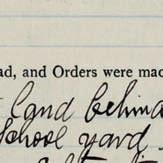 ad, and Orders were mad
land behind
School yard